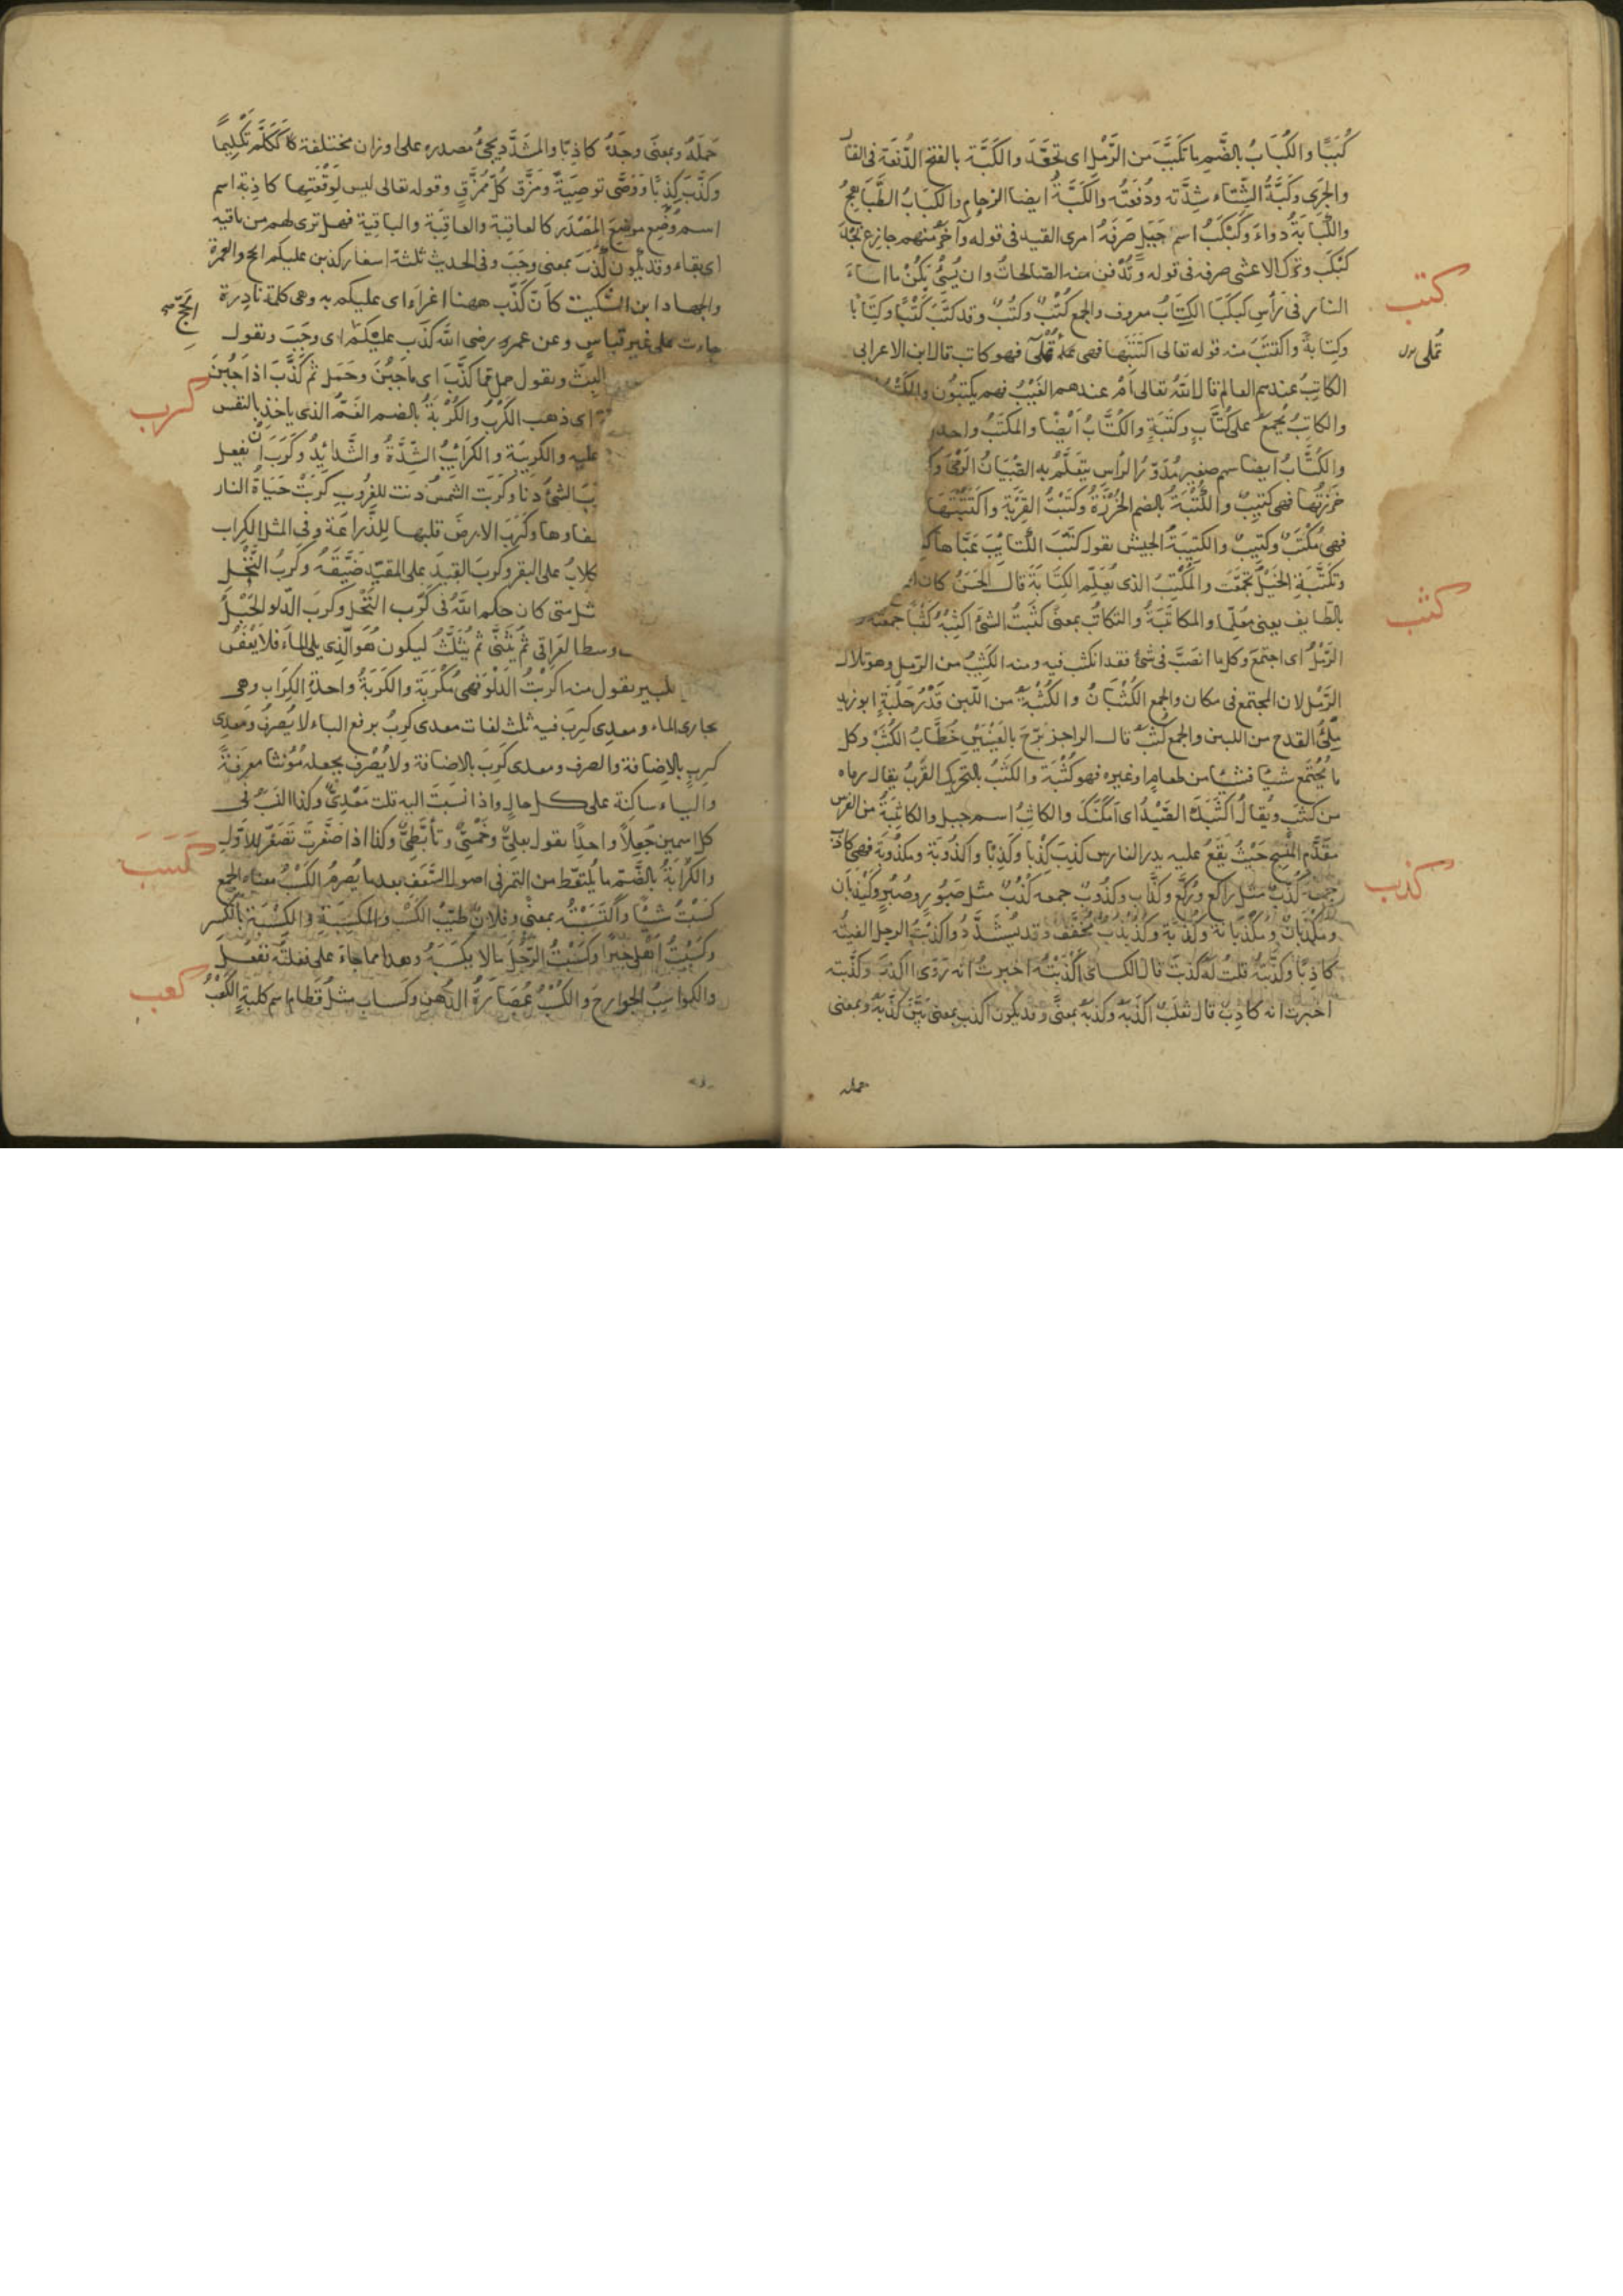 كُبَبًا والكُبَابُ بالضَّم ما تكبَّبَ من الرَّمْل اى تجعّدَ والكَبَّة بالفتح الدَّفعَة فى القتال
والجَرى وكَبَّةُ الشِّتاء شِدَّته ودُفعَتُه والكَبَّةُ ايضا الزحام والكَبَابُ الطَّبَاهِجُ
والكُبَابَةُ دواءٌ وكَبْكَبُ اسم جَبَل صَرَفَهُ امرئ القيس فى قوله وآخَرُ منهم جازِع نَجْدَ
كَبْكَبِ وترك الاعشى صرفه فى قوله وتُدْفن منه الصالحاتُ وان يُسِئْ يَكُنْ ما اساءَ
النار فى رأس كبكَبَا الكِتَابُ معروف والجمع كُتُبٌ وكُتْبٌ وقد كتَبَ كَتْبًا وكِتَابًا
كتب
وكِتابةً واكتتبَ منه قوله تعالى اكتَتَبَها فهى تُمْلَى فهو كاتب قال ابن الاعرابى
تُملى
الكاتِبُ عندهم العالم قال اللهُ تعالى أمْ عندهم الغَيْبُ فهم يكتبُون
والكاتِبُ يُجمَعُ على كُتَّابٍ وكَتَبَةٍ والكُتَّابُ أيْضًا والمَكتَبُ واحد
والكُتَّابُ ايضا سهم صغير مُدَوَّرُ الرأسِ يتعَلَّمُ به الصِّبْيَانُ الرَّمْىَ
خَرَزتُها فهى كَتِيبٌ والكُتْبَةُ بالضم الخُرْزَةُ وكتَبْتُ القِرْبَةَ واكتَتَبْتُها
فهى مُكْتَبٌ وكتِيبٌ والكتِيبَةُ الجيش تقول كَتَّبَ الكتَايِبَ عَبَّاها
وتكَتَّبَتِ الخَيْلُ تجمَّعَت والمُكْتِبُ الذى يُعَلِّم الكِتَابَةَ قال الحَسَنُ كان
بالطايف يعنى معلِّما والمكاتَبَةُ والتكاتُبُ بمعنًى كثَبتُ الشئ اكثِبُه كَثْبًا جمعته
كثب
الرَّمْلُ اى اجتمَعَ وكل ما انصَبَّ فى شئ فقد انكثب فيه ومنه الكَثِيبُ من الرمل وهو تلال
الرَّمْل لان المجتمع فى مكان والجمع الكُثْبَانُ والكُثْبَةُ من اللّبن قَدْرُ حَلْبَةٍ ابو زيد
مِلْئُ القدح من اللبن والجمع كُثَبٌ قال الراجز بَرَّحَ بالعَيْنَيْنِ خُطَّابُ الكُثَبْ وكل
ما يُجتَمَع شيئا فشيئا من طعامٍ او غيره فهو كُثْبَة والكَثَبُ بالتحريك القُربُ يقال رماه
من كَثَب ويُقالُ اكثَبَكَ الصَّيْدُ اى امكَنَكَ والكاثِبُ اسم جبل والكاثِبَةُ من الفرس
مقدَّم المِنْسَج حَيْثُ يقَعُ عليه يد الفارس كذِبَ كِذْبا وكَذِبًا واكذُوبَة ومكذُوبَة فهى كاذب
كذب
جمعه كُذَّبٌ مثل راكع ورُكَّعٍ وكذَّاب وكَذُوبٌ جمعه كُذُبٌ مثل صَبُورٍ وصُبُرٍ وكَيْذُبَان
ومكذبانٌ ومَكْذَبَانة وكُذَبَة وكُذُبْذُبٌ مخفَّف وقد يُشَدَّدُ واكذَبْتُ الرجل الفيتُه
كاذِبًا وكذَّبْتُه قلتُ لَه كذبتَ قال الكسائى أكْذَبْتُه اخبرتُ انه رَوَى الكذب وكذَّبته
اخبرت انه كاذِبٌ قال ثعلَب اكذَبَه وكذّبَه بمعنًى وقد يكون اكذب بمعنى بَيَّنَ كَذِبَه وبمعنى
حمله
حَمَلَهُ وبمعنَى وجَدَهُ كاذِبًا والمشَدَّد يجئُ مصدره على اوزان مختلفة ككَلَّمَ تَكْلِيمًا
وكذَّبَ كِذَّابًا ووَصَّى توصِيَةً ومَزَّق كُلَّ مُمَزَّقٍ وقوله تعالى ليس لِوَقْعَتِها كاذِبة اسم
اسم وُضِع موضِعَ المَصْدَر كالعاقبَة والعافِيَة والباقِية فهل ترى لهم من باقيه
اى بقاء وقد يكون كذَبَ بمعنى وجَبَ وفى الحديث ثلثة اسفار كذبن عليكم الحج والعمرة
والجهاد ابن السّكيت كأنّ كذَبَ ههنا اغراء اى عليكم به وهى كلمة نادِرَة
جاءت على غير قياس وعن عمر رضى الله كذَب عليكم اى وجَبَ وتقول
الحجّ
وتقول حمل فما كذَّبَ اى ما جَبُنَ وحَمَل ثم كذَّبَ اذا جَبُنَ
اى ذهب الكَرْبُ والكُرْبَةُ بالضم الغَمُّ الذى ياخذ بالنفس
كرب
عليه والكرِيبَة والكرَائِبُ الشِّدَّةُ والشَّدائِدُ وكَرَبَ أنْ يفعل
الشئُ دَنا وكرَبَت الشمسُ دنت للغُرُوبِ كرَبَتْ حَيَاةُ النار
وكَرَبَ الارضَ قلبها لِلزِّراعَة وفى المثل الكِرَاب
على البقر وكربَ القيدَ على المقيّد ضَيَّقَهُ وكَرَبُ النَّخْل
متى كان حكم اللهُ فى كَرَب النَّخْل وكرَبَ الدّلو الحَبْلُ
وسط العَرَاقِى ثم يُثَنَّى ثم يُثَلَّثُ ليكون هُوَ الّذِى يلى الماءَ فلا يَعْفَنُ
تقول منه اكرَبْتُ الدَلْوَ فهى مُكْرَبَة والكَرَبَةُ واحدة الكِرَاب وهى
مجارى الماء ومعدِى كَرِبَ فيه ثلث لغات معدى كَرِبُ برفع الباء لا يُصرفُ ومَعدى
كَرِبٍ بالاضافة والصرف ومعدى كَرِبَ بالاضافة ولا يُصْرَف يجعله مُؤنثا معرِفَةً
والياء ساكِنَة على كل حال واذا نسَبتَ اليه قلت مَعْدِىٌّ وكذا النَسَبُ فى
كل اسمين جُعِلَا واحدًا تقول بعلِىٌّ وخَمْسِىٌّ وتأبَّطِىٌّ وكذا اذا صَغَّرتَ تصَغّر للاَوَّل
والكُرَابَةُ بالضَّم ما يُلتقَط من التمر فى اصول السَّعَف بعد ما يُصرمُ الكَسْبُ معناه الجمع
كسب
كسَبْتُ شيْئًا واكتَسَبْتُه بمعنًى وفلانٌ طيِّبُ الكَسْب والمكسِبَة والكِسْبَة بالكسر
وكسَبْتُ أهلى خيرًا وكسَبْتُ الرّجُلَ مالا يكسَبَهُ وهذا مما جاءَ على فعلتُه ففعَلَ
والكواسِبُ الجوارحُ والكُسْبُ عُصَارَةُ الدُّهن وكَساب مثلُ قَطام اسم كلبة الكَعْبُ
كعب